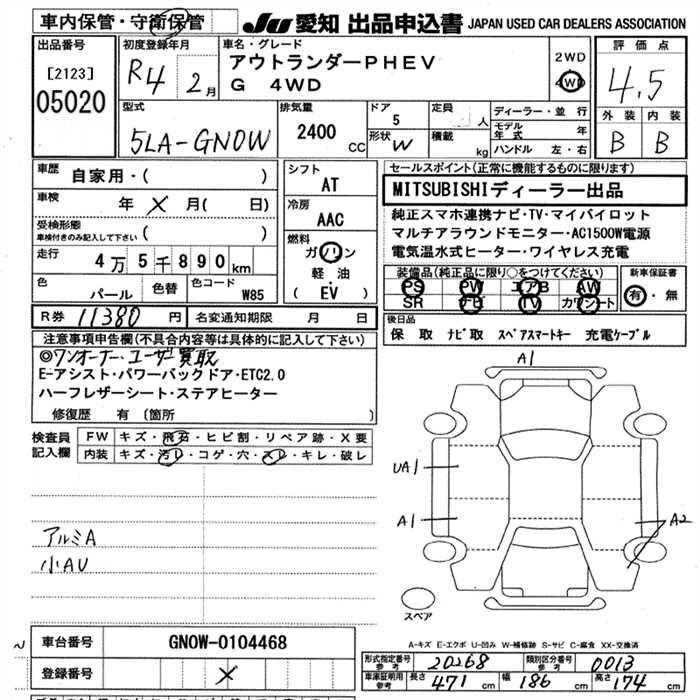 車内保管・守衛保管
JU 愛知 出品申込書 JAPAN USED CAR DEALERS ASSOCIATION
出品番号
[2123]
05020
初度登録年月
R4 2月
車名・グレード
アウトランダーPHEV
G 4WD
2WD
4WD
評価点
4.5
外装 内装
B B
型式
5LA-GN0W
排気量
2400 CC
ドア
5
形状 W
定員 人
積載 kg
ディーラー・並行
モデル年式 年
ハンドル 左・右
車歴 自家用・( )
車検 年 X 月( 日)
受検形態
車検付きのみ記入して下さい ( )
走行 4万5千890km
色 パール
色替
色コード W85
シフト
AT
冷房
AAC
燃料
ガソリン
軽油
( EV )
セールスポイント(正常に機能するものに限ります)
MITSUBISHIディーラー出品
純正スマホ連携ナビ・TV・マイパイロット
マルチアラウンドモニター・AC1500W電源
電気温水式ヒーター・ワイヤレス充電
装備品(純正品に限り○をつけてください)
PS PW エアB AW
SR ナビ TV カワシート
新車保証書
有・無
R券 11380 円
名変通知期限 月 日
後日品
保 取 ナビ取 スペアスマートキー 充電ケーブル
注意事項申告欄(不具合内容等は具体的に記入して下さい)
◎ワンオーナー・ユーザー買取
E-アシスト・パワーバックドア・ETC2.0
ハーフレザーシート・ステアヒーター
修復歴 有 (箇所 )
検査員記入欄
FW キズ・飛石・ヒビ割・リペア跡・X要
内装 キズ・汚レ・コゲ・穴・スレ・キレ・破レ
アルミA
小AU
A1
UA1
A1
A2
スペア
A-キズ E-エクボ U-凹み W-補修跡 S-サビ C-腐食 XX-交換済
車台番号 GN0W-0104468
登録番号 X
形式指定番号 参考 20268
類別区分番号 参考 0013
車庫証明用 参考 長さ 471 cm 幅 186 cm 高さ 174 cm